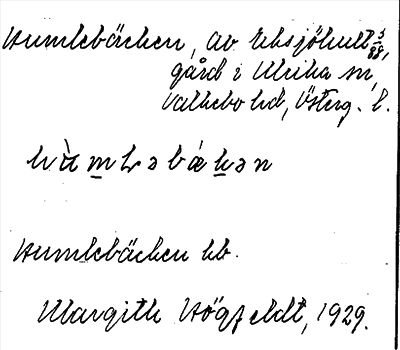 Humlebäcken, av Eksjöhult 3/88,
gård i Ulrika sn,
Valkebo hd, Österg. l.
hùmləbǽkən
Humlebäcken hb.
Margith Högfeldt, 1929.